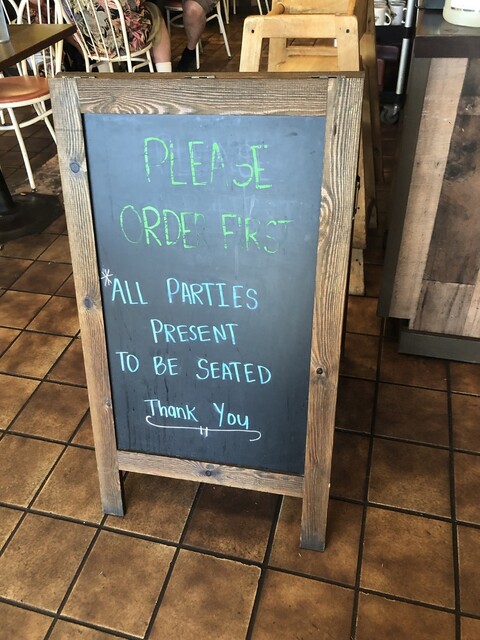 PLEASE
ORDER FIRST
*ALL PARTIES
PRESENT
TO BE SEATED
Thank You